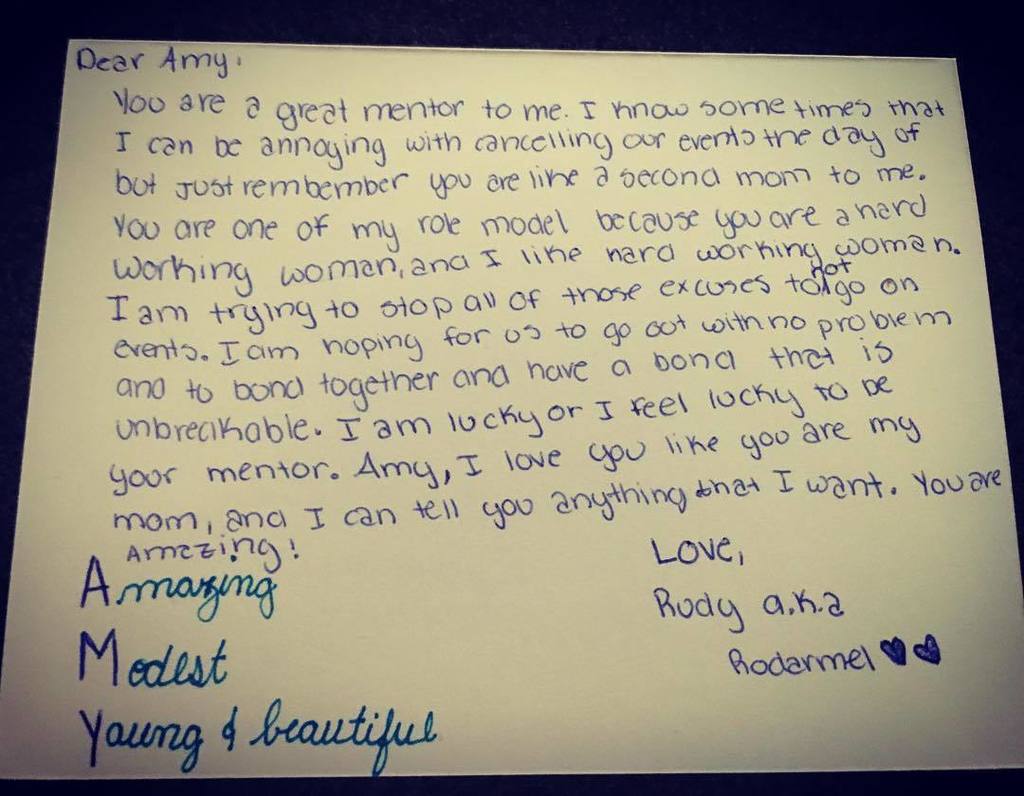 Dear Amy,
You are a great mentor to me. I know sometimes that
I can be annoying with cancelling our events the day of
but just rembember you are like a second mom to me.
You are one of my role model because you are a hard
working woman, and I like hard working woman.
I am trying to stop all of those excuses to not go on
events. I am hoping for us to go out with no problem
and to bond together and have a bond that is
unbreakable. I am lucky or I feel lucky to be
your mentor. Amy, I love you like you are my
mom, and I can tell you anything that I want. You are
Amazing!
Amazing
Modest
Young & beautiful
Love,
Rudy a.k.a
Rodarmel